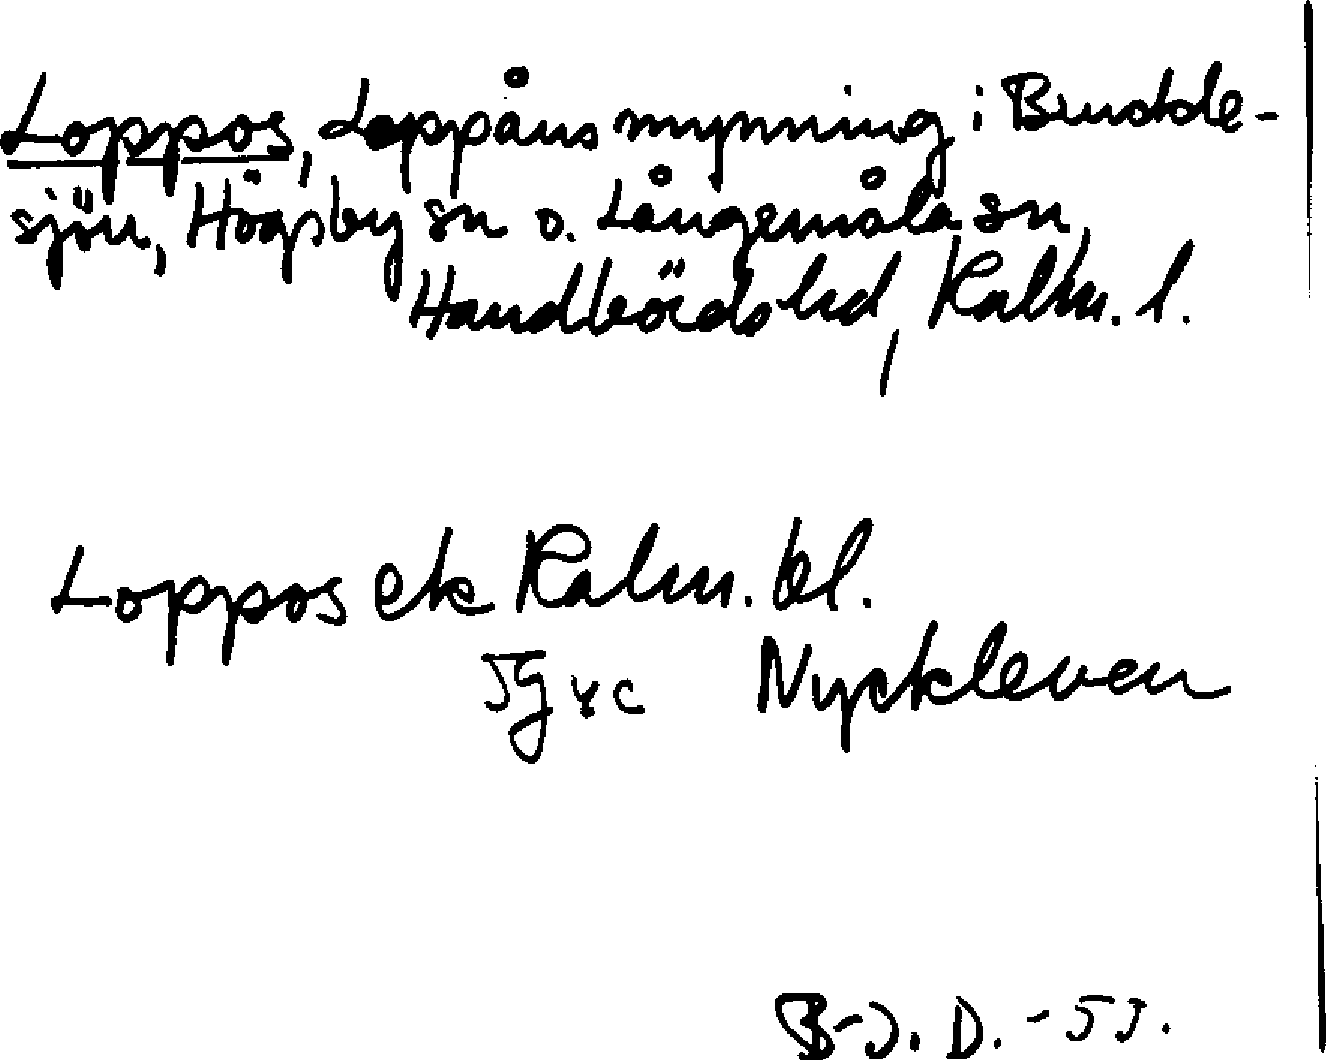 Loppos, Loppåns mynning i Brudde-
sjön, Högsby sn o. Långemåla sn,
Handbörds hd, Kalm. l.
Loppos ek Kalm. bl.
Nyckleven
B-J. D. - 53.